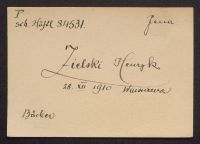 I
sch. Häftl. 84531. Jena
Zielski Henryk
28. XII 1910 Warszawa
Bäcker